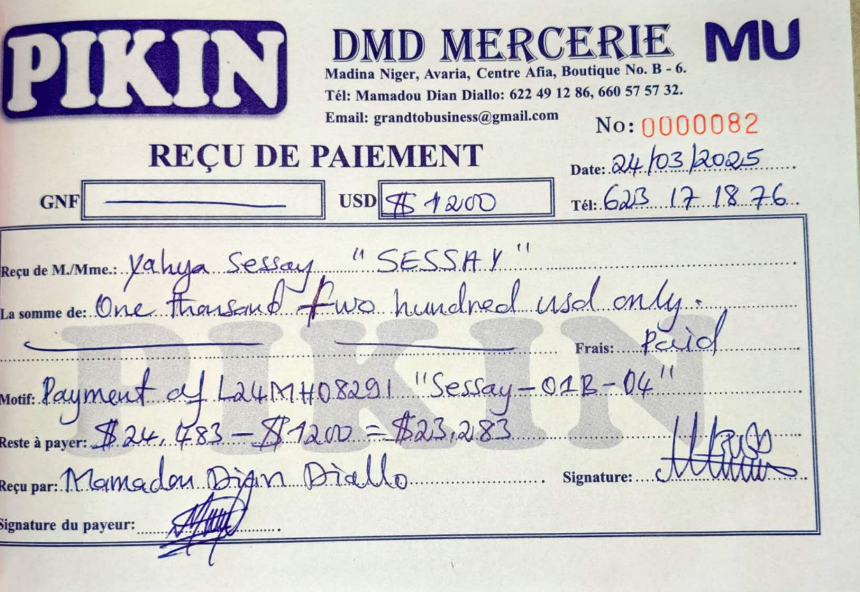 PIKIN
DMD MERCERIE MU
Madina Niger, Avaria, Centre Afia, Boutique No. B - 6.
Tél: Mamadou Dian Diallo: 622 49 12 86, 660 57 57 32.
Email: grandtobusiness@gmail.com
No: 0000082
REÇU DE PAIEMENT
Date: 24/03/2025
GNF USD $ 1200
Tél: 623 17 18 76
Reçu de M./Mme.: Yahya Sessay "SESSAY"
La somme de: One thousand two hundred usd only.
Frais: Paid
Motif: Payment of L24MH08291 "Sessay-01B-04"
Reste à payer: $24,483 - $1200 = $23,283
Reçu par: Mamadou Dian Diallo Signature:
Signature du payeur:
PIKIN